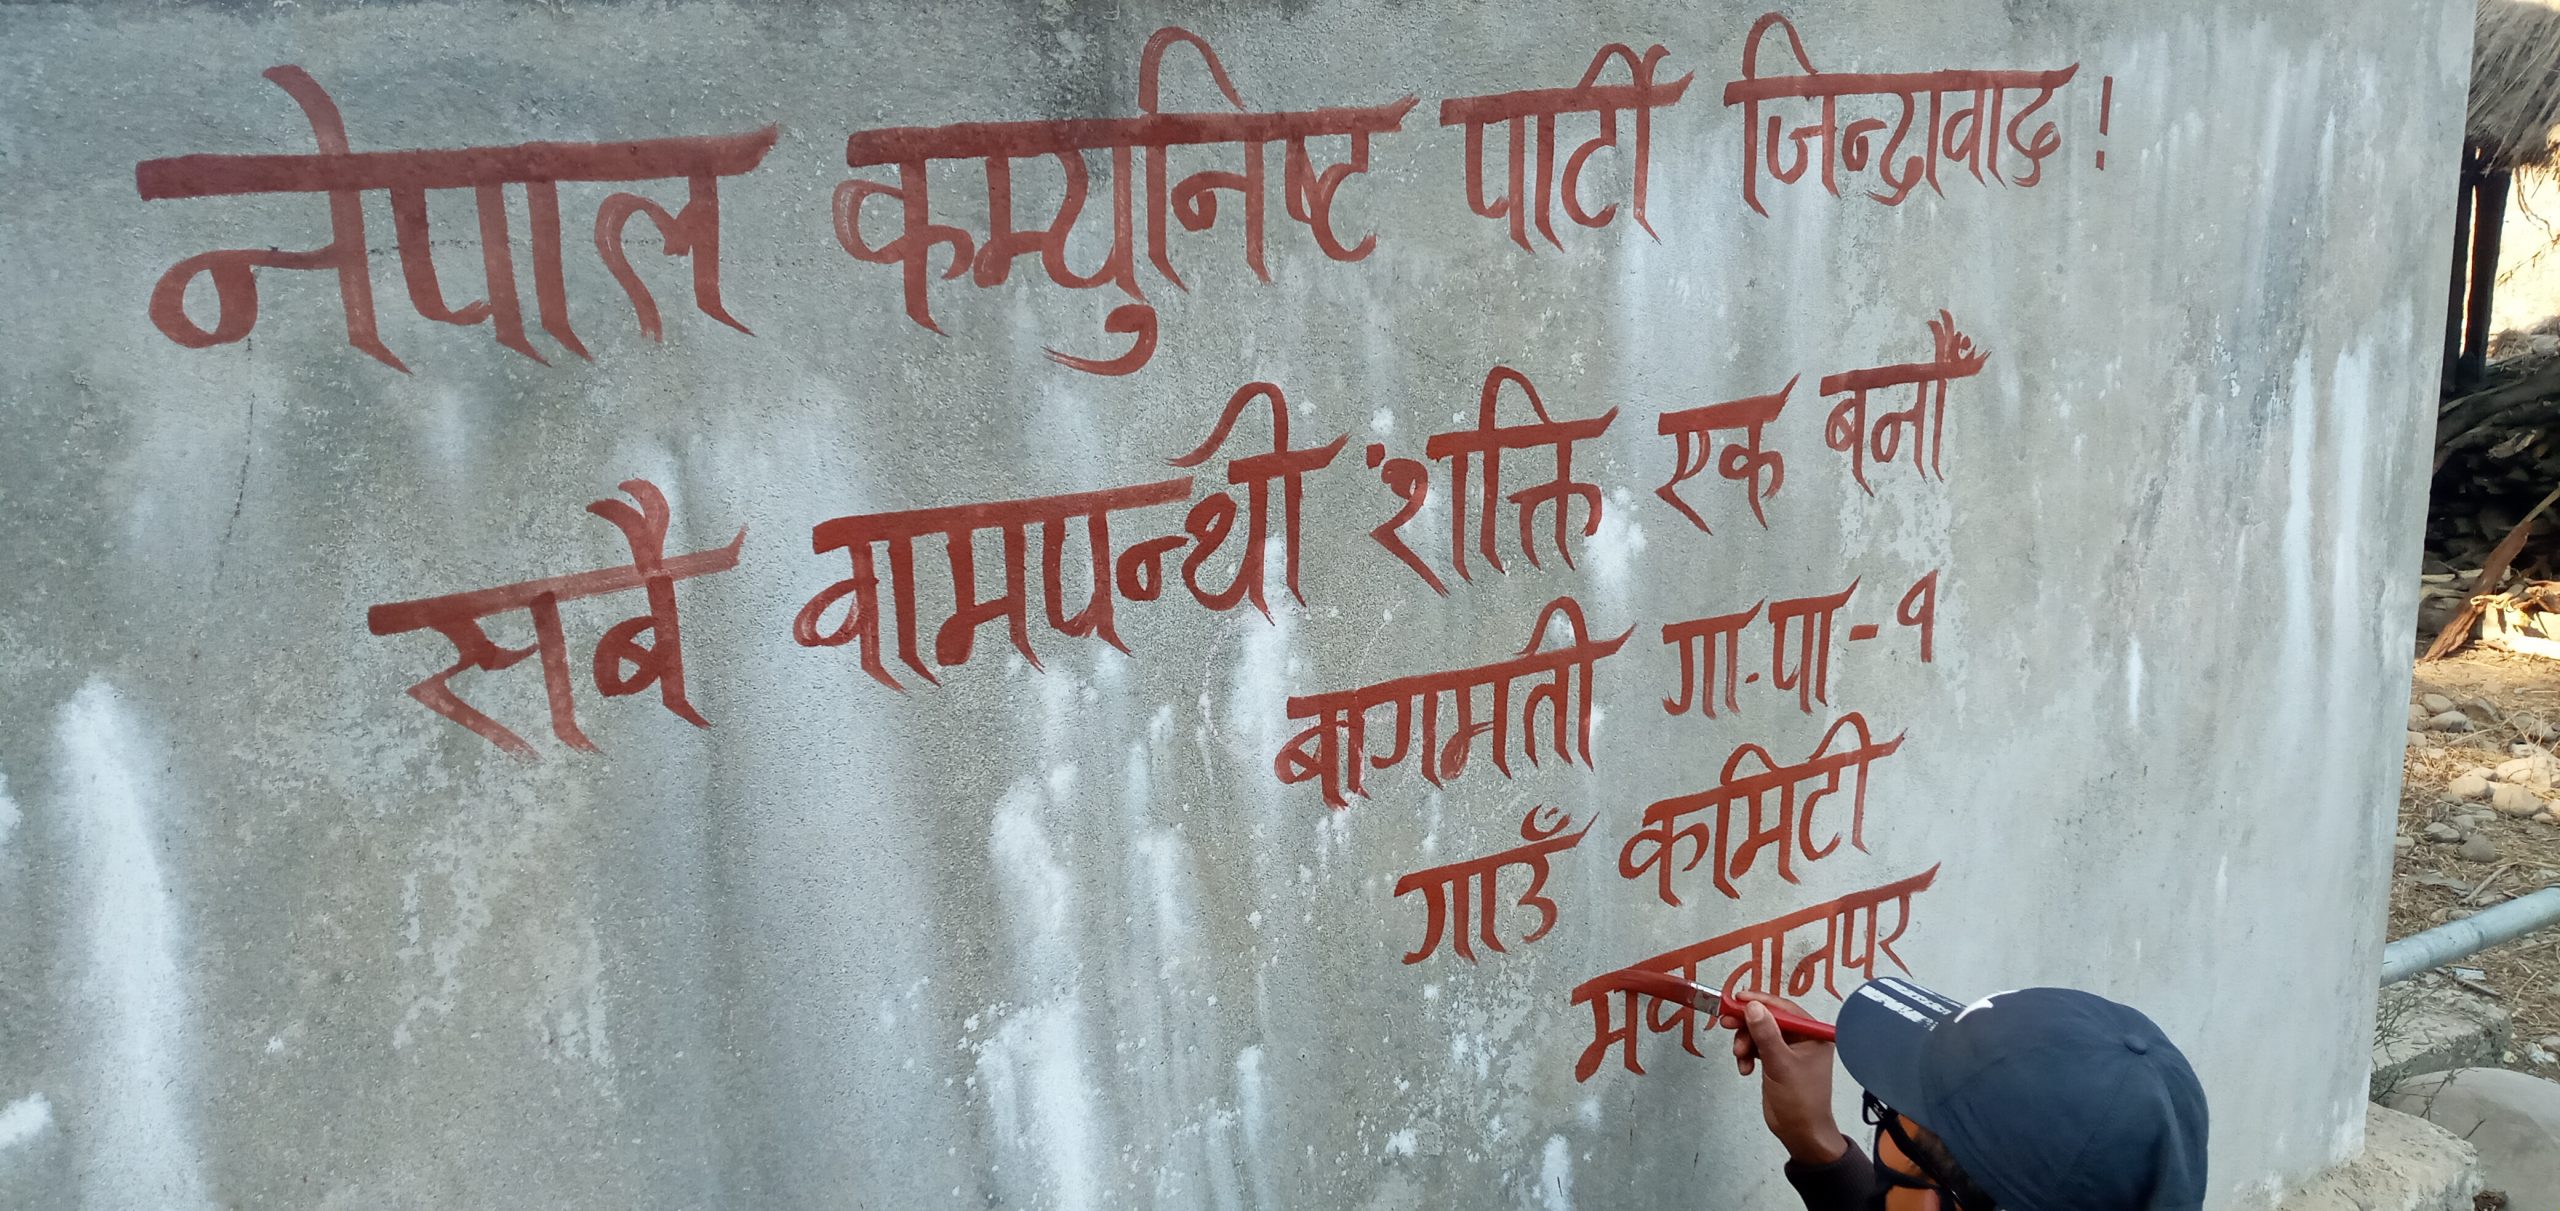 नेपाल कम्युनिष्ट पार्टी जिन्दावाद!
सबै वामपन्थी शक्ति एक बनौँ
बागमती गा.पा-१
गाउँ कमिटी
मकवानपर